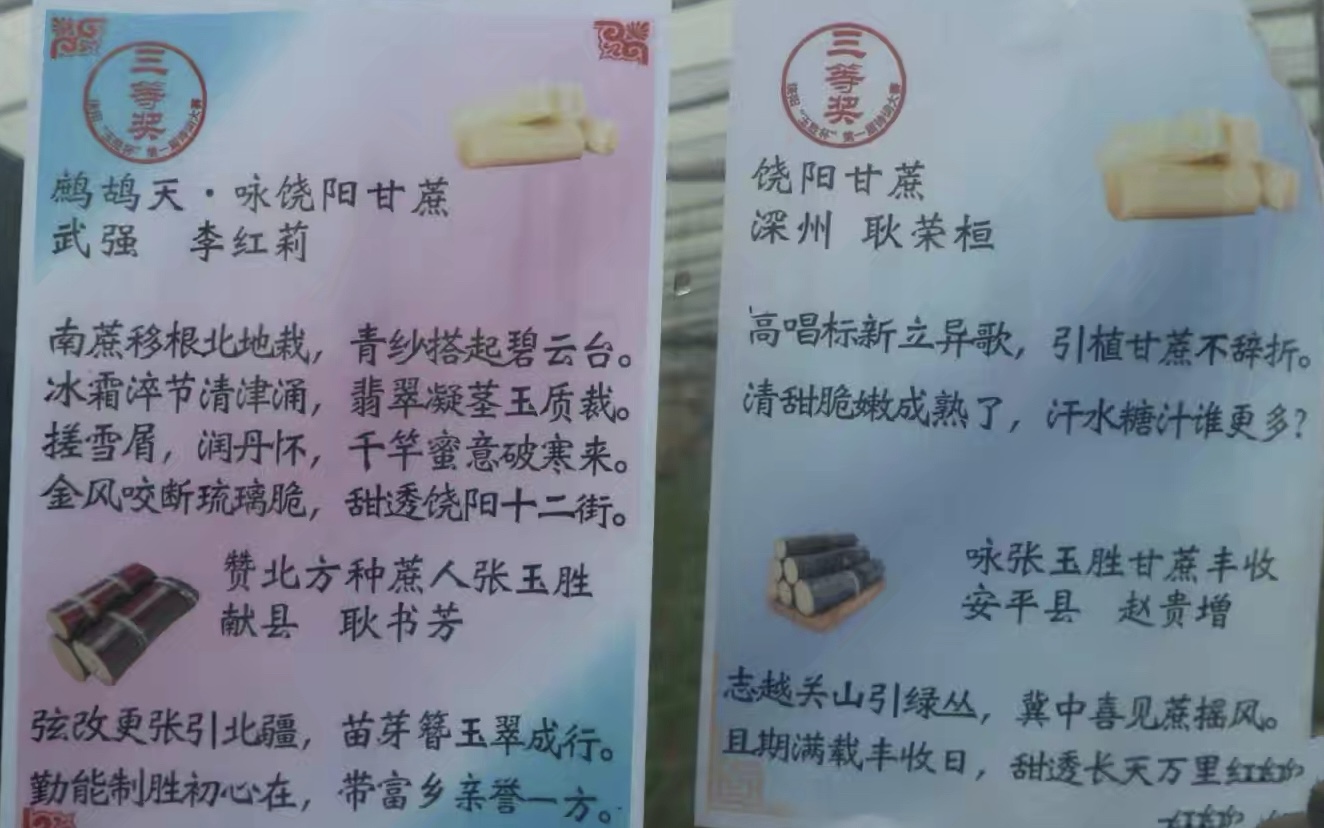 三等奖
饶阳“玉胜杯”第一届诗词大赛
鹧鸪天·咏饶阳甘蔗
武强 李红莉
南蔗移根北地栽，青纱搭起碧云台。
冰霜淬节清津涌，翡翠凝茎玉质裁。
搓雪屑，润丹怀，千竿蜜意破寒来。
金风咬断琉璃脆，甜透饶阳十二街。
赞北方种蔗人张玉胜
献县 耿书芳
弦改更张引北疆，苗芽簪玉翠成行。
勤能制胜初心在，带富乡亲誉一方。
三等奖
饶阳“玉胜杯”第一届诗词大赛
饶阳甘蔗
深州 耿荣桓
高唱标新立异歌，引植甘蔗不辞折。
清甜脆嫩成熟了，汗水糖汁谁更多？
咏张玉胜甘蔗丰收
安平县 赵贵增
志越关山引绿丛，冀中喜见蔗摇风。
且期满载丰收日，甜透长天万里红